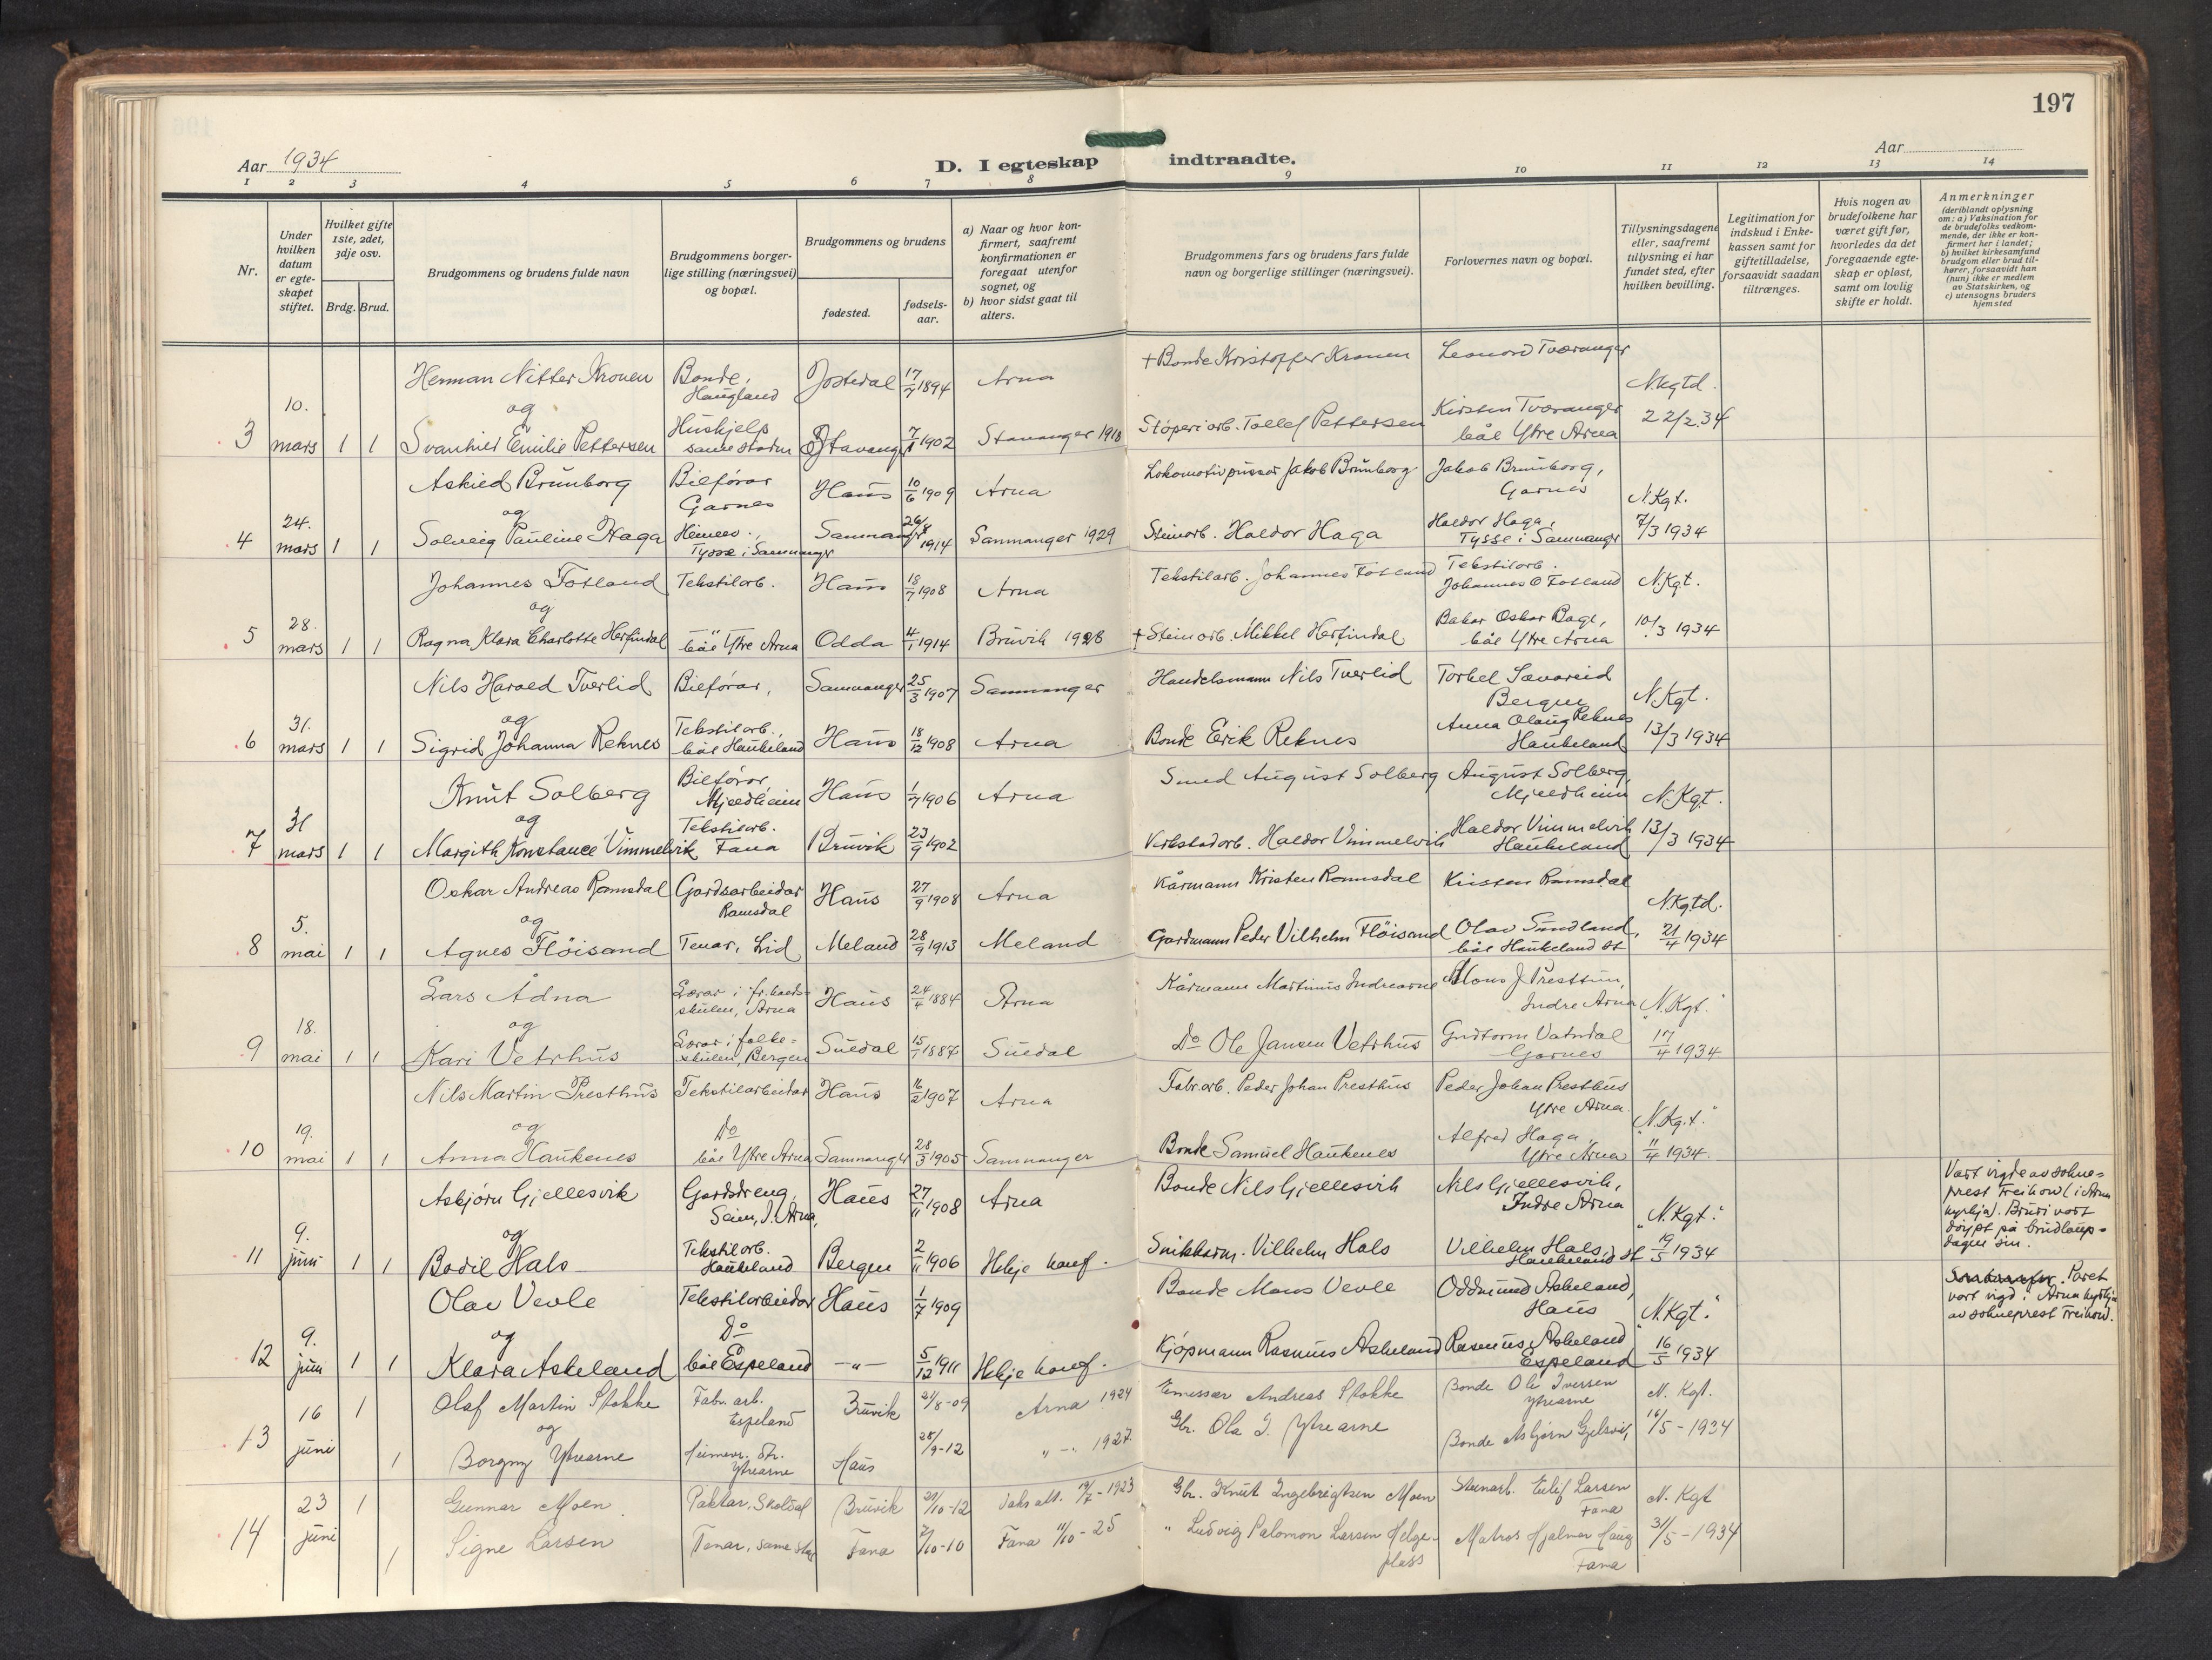 197
Aar 1934
D. I egteskap indtraadte.
Aar
1 2 3 4 5 6 7 8 9 10 11 12 13 14
Nr.
Under hvilken datum er egte-skapet stiftet.
Hvilket gifte 1ste, 2det, 3dje osv.
Brdg. Brud.
Brudgommens og brudens fulde navn
Brudgommens borger-lige stilling (næringsvei) og bopæl.
Brudgommens og brudens
fødested.
fødsels-aar.
a) Naar og hvor kon-firmert, saafremt konfirmationen er foregaat utenfor sognet, og
b) hvor sidst gaat til alters.
Brudgommens fars og brudens fars fulde navn og borgerlige stillinger (næringsvei).
Forlovernes navn og bopæl.
Tillysningsdagene eller, saafremt tillysning ei har fundet sted, efter hvilken bevilling.
Legitimation for indskud i Enke-kassen samt for giftetilladelse, forsaavidt saadan tiltrænges.
Hvis nogen av brudefolkene har været gift før, hvorledes da det foregaaende egte-skap er opløst, samt om lovlig skifte er holdt.
Anmerkninger (deriblandt oplysning om: a) Vaksination for de brudefolks vedkom-mende, der ikke er kon-firmert her i landet; b) hvilket kirkesamfund brudgom eller brud til-hører, forsaavidt han (hun) ikke er medlem av Statskirken, og c) utensogns bruders hjemsted
Herman Nitter Kronen Bonde, Haugland Jostedal 17/7 1894 Arna + Bonde Kristoffer Kronen Leonord Tværanger N.kgtd.
og
3 10. mars 1 1 Svanhild Emilie Pettersen Hushjelp samestadn Stavanger 7/8 1902 Stavanger 1918 Støperiarb. Tollef Pettersen Kirsten Tværanger båe Ytre Arna 22/2.34
Askild Brunborg Bilførar Garnes Haus 10/6 1909 Arna Lokomotivpusser Jakob Brunborg Jakob Brunborg, Garnes N.Kgt.
og
4 24. mars 1 1 Solveig Pauline Haga Heimev., Tysse i Samnanger Samnanger 26/8 1914 Samnanger 1929 Steinarb. Haldor Haga Haldor Haga, Tysse i Samnanger 7/3 1934
Johannes Fotland Tekstilarb. Haus 18/7 1908 Arna Tekstilarb. Johannes Fotland Tekstilarb. Johannes O Fotland N.Kgt.
og
5 28. mars 1 1 Ragna Klara Charlotte Herfindal båe Ytre Arna Odda 4/1 1914 Bruvik 1928 + Steinarb. Mikkel Herfindal Bakar Oskar Bage, båe Ytre Arna 10/3 1934
Nils Harald Tverlid Bilførar, Samnanger 25/3 1907 Samnanger Handelsmann Nils Tverlid Torkel Sævareid Bergen N.Kgt.
og
6 31. mars 1 1 Sigrid Johanna Reknes Tekstilarb., båe Haukeland Haus 18/12 1908 Arna Bonde Erik Reknes Anna Olaug Reknes Haukeland 13/3 1934
Knut Solberg Bilførar, Mjeldheim Haus 1/7 1906 Arna Smed August Solberg August Solberg, Mjeldheim N.Kgt.
og
7 31 mars 1 1 Margith Konstance Vimmelvik Tekstilarb. Fana Bruvik 23/9 1902 Verkstadarb. Haldor Vimmelvik Haldor Vimmelvik Haukeland 13/3 1934
Oskar Andreas Ramsdal Gardsarbeidar Ramsdal Haus 27/9 1908 Arna Kårmann Kristen Ramsdal Kristen Ramsdal N.Kgtd.
og
8 5. mai 1 1 Agnes Fløisand Tenar, Lid Meland 28/9 1913 Meland Gardmann Peder Vilhelm Fløisand Olav Sundland, båe Haukeland st 21/4 1934
Lars Ådna Lærar i fr.halds-skulen, Arna Haus 24/4 1884 Arna Kårmann Martinus Indrearne Mons J. Presttun, Indre Arna "N.Kgt."
og
9 18. mai 1 1 Kari Vetrhus Lærar i folke-skulen, Bergen Suldal 15/1 1887 Suldal Do Ole Jansen Vetrhus Gudtorm Vatndal Garnes 17/4 1934
Nils Martin Presthus Tekstilarbeidar Haus 16/2 1907 Arna Fabr.arb. Peder Johan Presthus Peder Johan Presthus Ytre Arna "N.Kgt."
og
10 19. mai 1 1 Anna Haukenes Do båe Ytre Arna Samnanger 28/3 1905 Samnanger Bonde Samuel Haukenes Alfred Haga, Ytre Arna 11/4 1934.
Asbjørn Gjellesvik Gardsdreng, Seim, I. Arna, Haus 27/11 1908 Arna Bonde Nils Gjellesvik Nils Gjellesvik, Indre Arna "N.Kgt." Vart vigde av sokne-prest Treihow (i Arna kyrkja). Bruri vart døypt på brudlaups-dagen sin.
og
11 9. juni 1 1 Bodil Hals Tekstilarb. Haukeland Bergen 2/11 1906 Ikkje konf. Snikkarm. Vilhelm Hals Vilhelm Hals, Haukeland st 19/5 1934
Olav Vevle Tekstilarbeidar Haus 1/7 1909 Bonde Mons Vevle Oddmund Askeland, Haus "N.Kgt." Paret vart vigd i Arna kyrkja av sokneprest Treihow.
og
12 9. juni 1 1 Klara Askeland Do båe Espeland -"- 5/12 1911 Ikkje konf. Kjøpmann Rasmus Askeland Rasmus Askeland Espeland 16/5 1934
Olaf Martin Stokke Fabr. arb. Espeland Bruvik 21/8-09 Arna 1924 Emissær Andreas Stokke Bonde Ole Iversen Ytrearne N. Kgt.
og
13 16 juni 1 1 Borgny Ytrearne Heimev. Str. Ytrearne Haus 28/9-12 " - " 1927. Gbr. Ola I. Ytrearne Bonde Asbjørn Gjelsvik, 16/5-1934
Gunnar Moen Paktar, Skoldal Bruvik 21/10-12 Vaks alt. 19/7-1923 Gbr. Knut Ingebrigtsen Moen Steinarb. Eilif Larsen Fana N. Kgt
14 23 juni 1 1 Signe Larsen Tenar, same sta Fana 7/10-10 Fana 11/10-25 " Ludvig Salomon Larsen Helge-pless Matros Hjalmar Haug Fana 31/5-1934